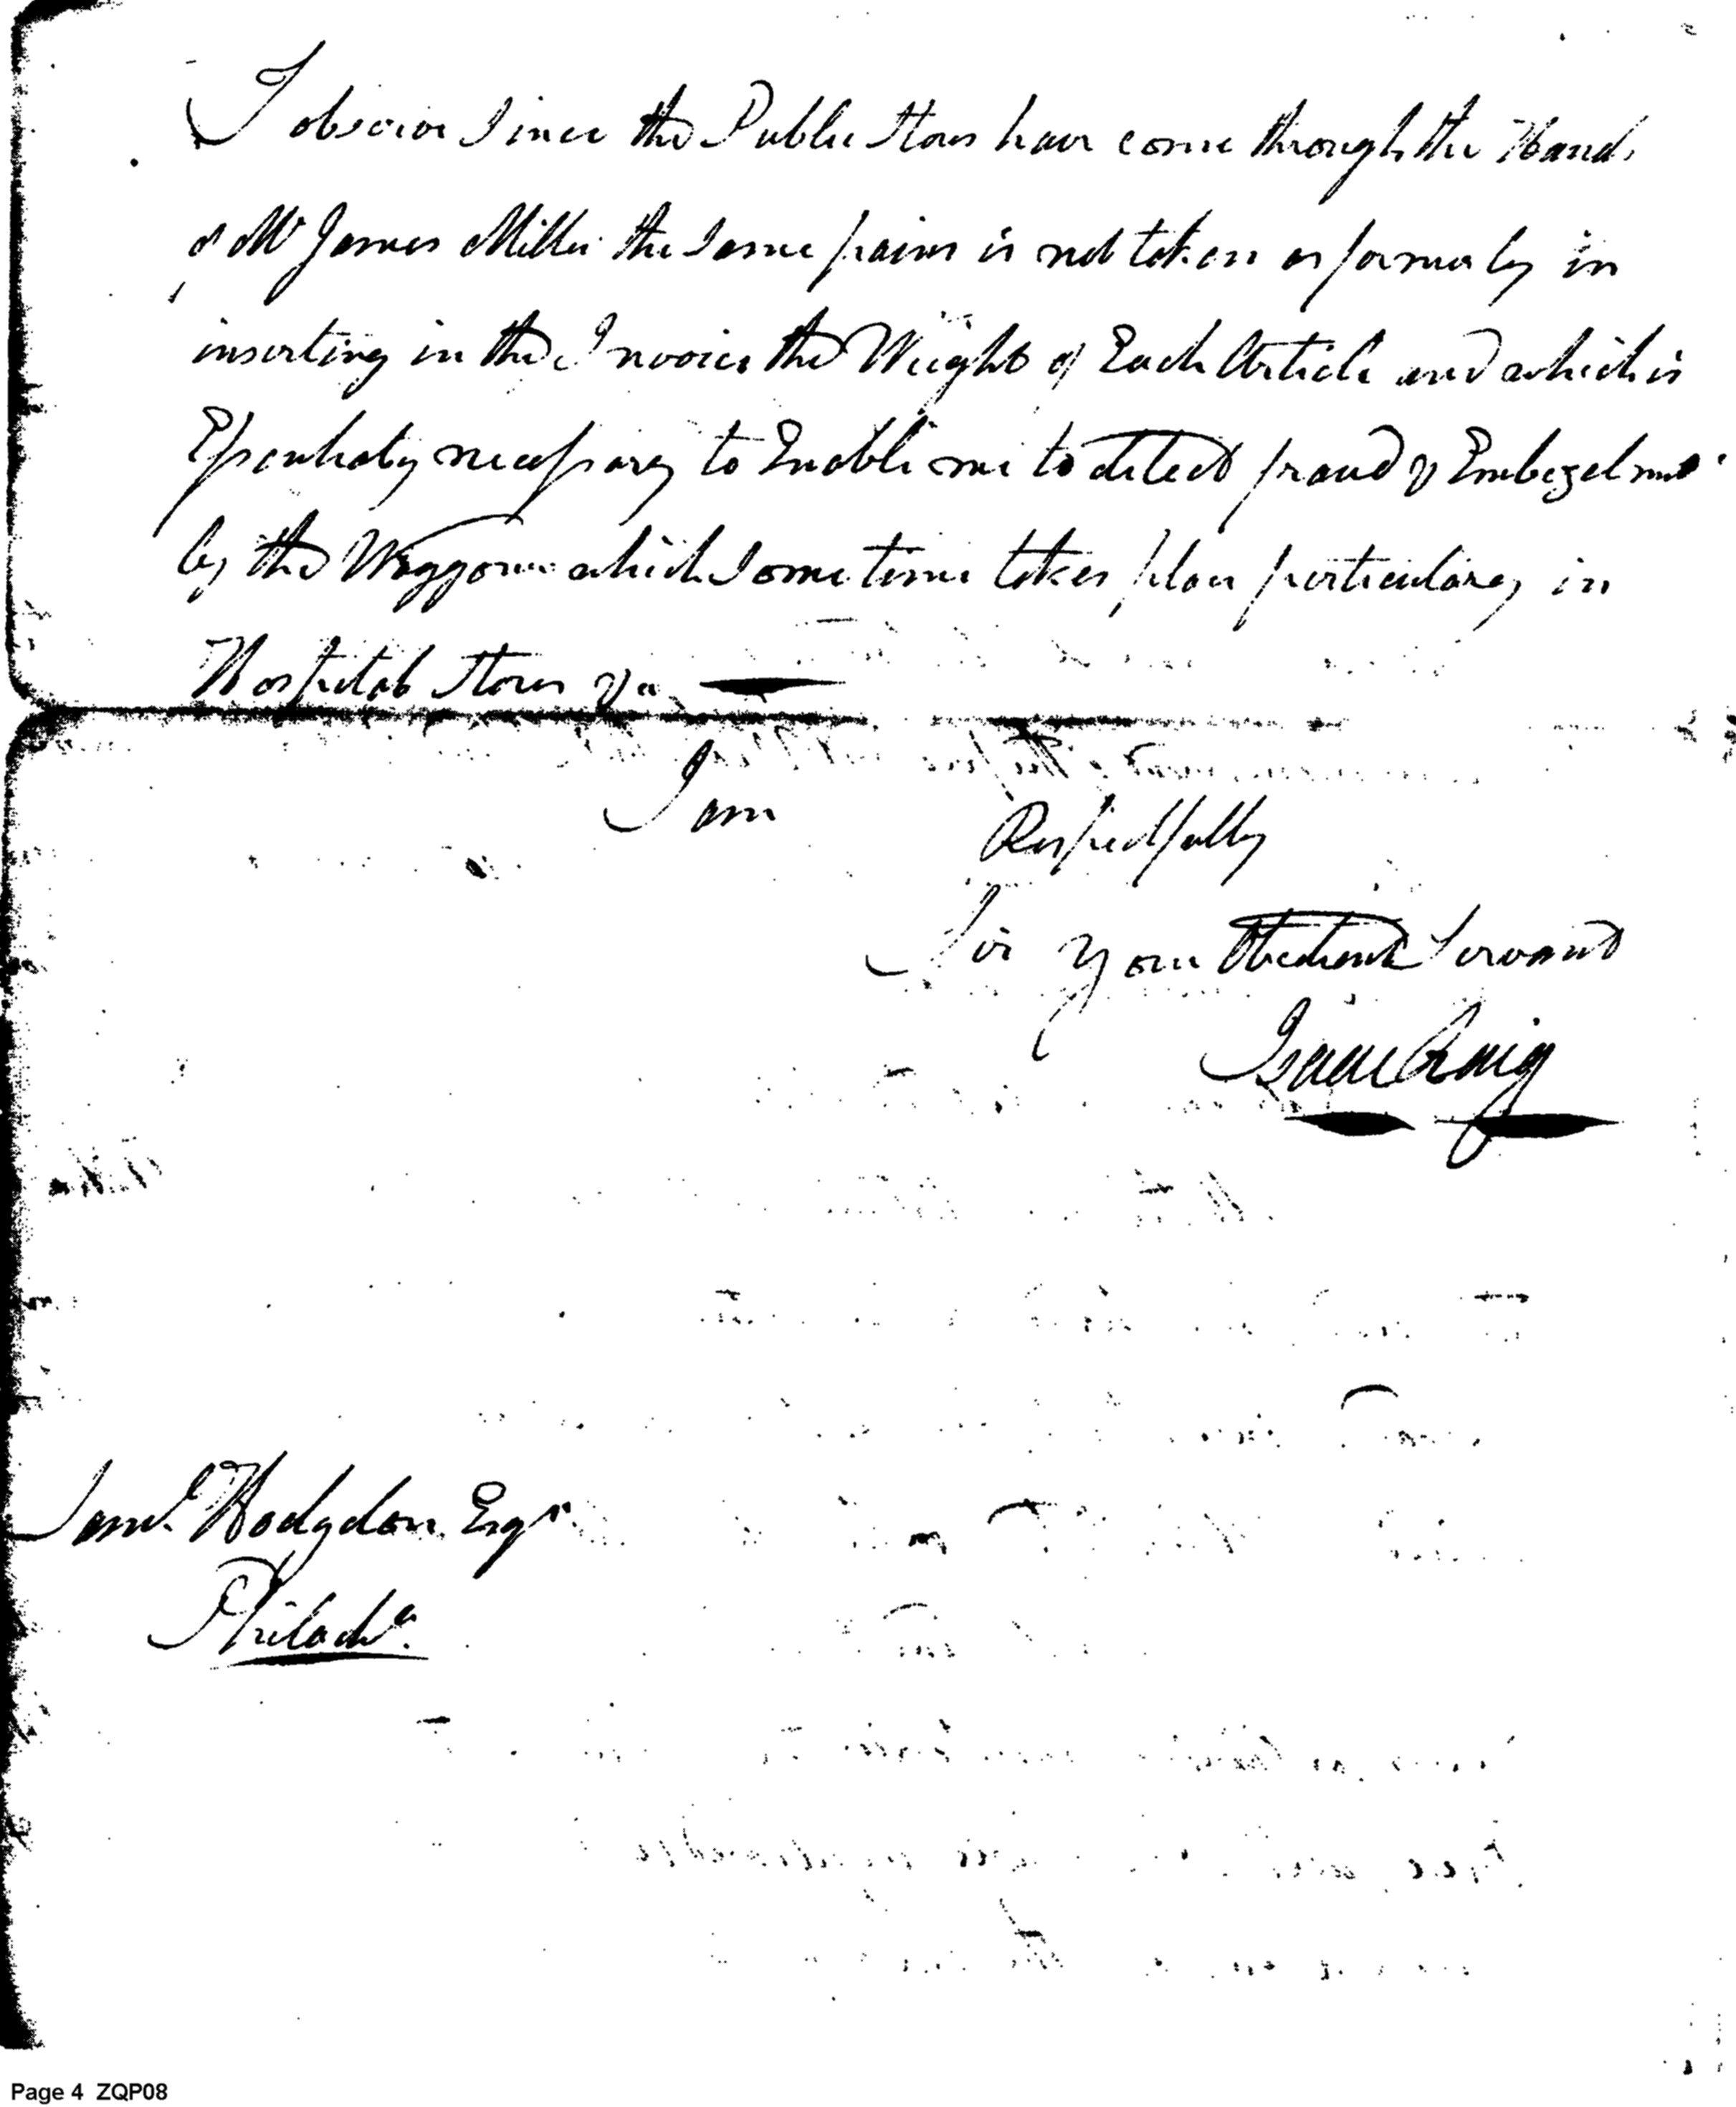 I observe Since the Public Stores have come through the Hands
of Mr James Miller the Same pains is not taken as formerly in
inserting in the Invoices the Weight of Each Article and which is
Essentialy necessary to Enable me to detect fraud & Embezelment
by the Waggoners which Sometimes takes place particularly in
Hospital Stores &a
I am
Respectfully
Sir your Obedient Servant
Isaac Craig
Saml. Hodgdon Esqr
Philada.
Page 4 ZQP08